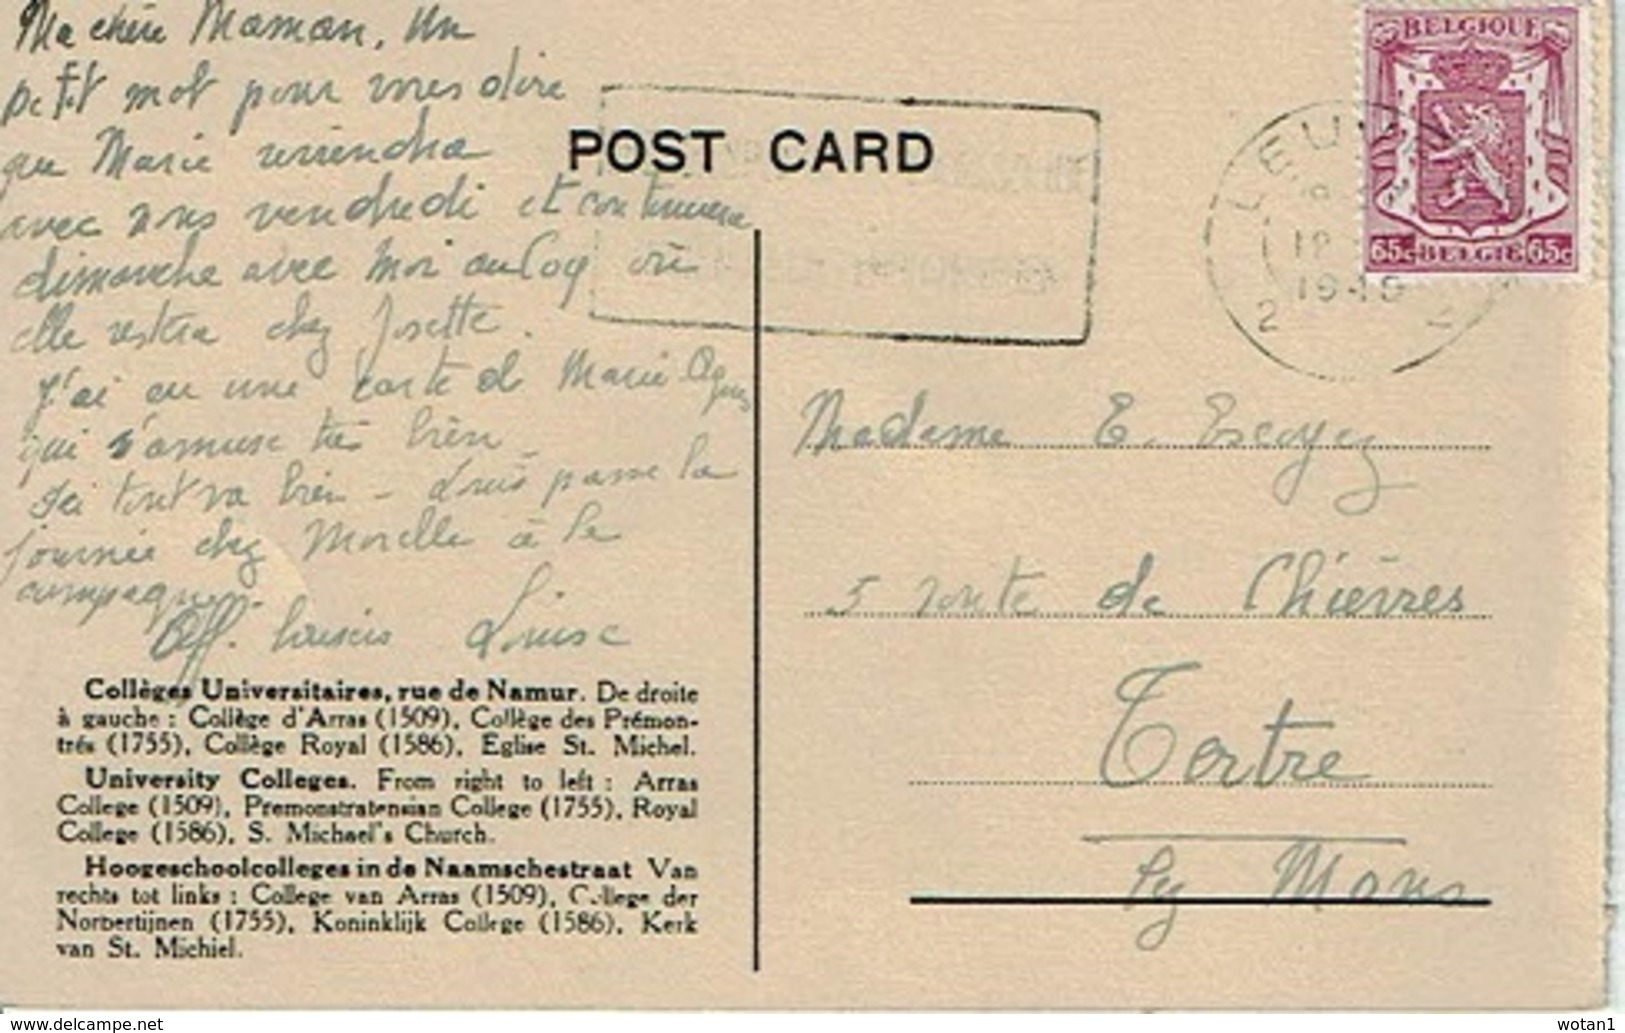 Ma chère Maman, Un
petit mot pour vous dire
que Marie reviendra
avec nous vendredi et continuera
dimanche avec moi au Coq où
elle restera chez Josette.
J'ai eu une carte d Marie Agnes
qui s'amuse très bien
Ici tout va bien - Louis passe la
journée chez Morelle à la
campagne.
Aff. baisers Louise
Collèges Universitaires, rue de Namur. De droite
à gauche : Collège d'Arras (1509), Collège des Prémon-
trés (1755), Collège Royal (1586), Eglise St. Michel.
University Colleges. From right to left : Arras
College (1509), Premonstratensian College (1755), Royal
College (1586), S. Michael's Church.
Hoogeschoolcolleges in de Naamschestraat Van
rechts tot links : College van Arras (1509), College der
Norbertijnen (1755), Koninklijk College (1586), Kerk
van St. Michiel.
POST CARD
BELGIQUE
65c BELGIE 65c
LEUV
12
1949
2 2
Madame E. Escoyez
5 route de Chièvres
Tertre
lez Mons
www.delcampe.net
wotan1